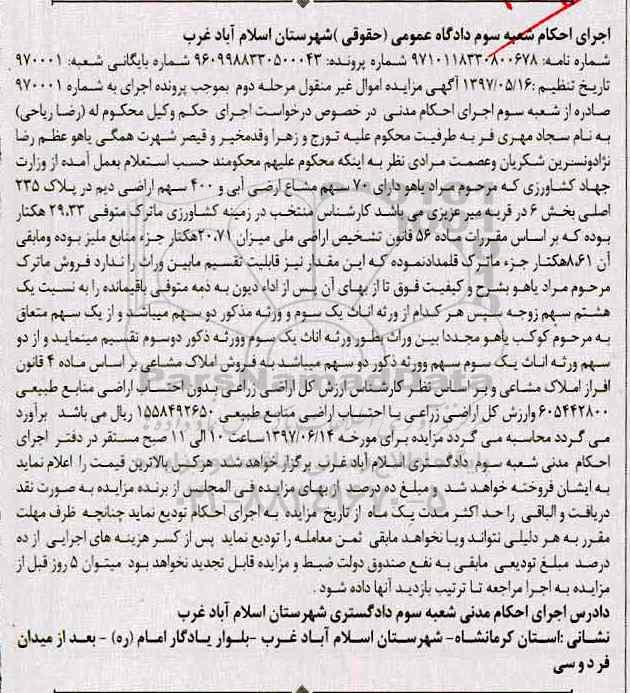 اجرای احکام شعبه سوم دادگاه عمومی (حقوقی )شهرستان اسلام آباد غرب
شماره نامه: ۹۷۱۰۱۱۸۳۳۰۸۰۰۶۷۸ شماره پرونده: ۹۶۰۹۹۸۸۳۳۰۵۰۰۰۴۳ شماره بایگانی شعبه: ۹۷۰۰۰۱
تاریخ تنظیم :۱۳۹۷/۰۵/۱۶ آگهی مزایده اموال غیر منقول مرحله دوم بموجب پرونده اجرای به شماره ۹۷۰۰۰۱
صادره از شعبه سوم اجرای احکام مدنی در خصوص درخواست اجرای حکم وکیل محکوم له (رضا ریاحی)
به نام سجاد مهری فر به طرفیت محکوم علیه تورج و زهرا وقدمخیر و قیصر شهرت همگی یاهو عظم رضا
نژادونسرین شکریان وعصمت مرادی نظر به اینکه محکوم علیهم محکومند حسب استعلام بعمل آمده از وزارت
جهاد کشاورزی که مرحوم مراد یاهو دارای ۷۰ سهم مشاع ارضی آبی و ۴۰۰ سهم اراضی دیم در پلاک ۲۳۵
اصلی بخش ۶ در قریه میر عزیزی می باشد کارشناس منتخب در زمینه کشاورزی ماترک متوفی ۲۹،۳۳ هکتار
بوده که بر اساس مقررات ماده ۵۶ قانون تشخیص اراضی ملی میزان ۲۰،۷۱هکتار جزء منابع ملیز بوده ومابقی
آن ۸،۶۱هکتار جزء ماترک قلمدادنموده که این مقدار نیز قابلیت تقسیم مابین وراث را ندارد فروش ماترک
مرحوم مراد یاهو بشرح و کیفیت فوق تا از بهای آن پس از اداء دیون به ذمه متوفی باقیمانده را به نسبت یک
هشتم سهم زوجه سپس هر کدام از ورثه اناث یک سوم و ورثه مذکور دو سهم میباشد و از یک سهم متعلق
به مرحوم کوکب یاهو مجددا بین وراث بطور ورثه اناث یک سوم وورثه ذکور دوسوم تقسیم مینماید و از دو
سهم ورثه اناث یک سوم سهم وورثه ذکور دو سهم میباشد به فروش املاک مشاعی بر اساس ماده ۴ قانون
افراز املاک مشاعی و بر اساس نظر کارشناس ارزش کل اراضی زراعی بدون احتساب اراضی منابع طبیعی
۶۰۵۴۴۲۸۰۰ وارزش کل اراضی زراعی با احتساب اراضی منابع طبیعی ۱۵۵۸۴۹۲۶۵۰ ریال می باشد برآورد
می گردد محاسبه می گردد مزایده برای مورخه ۱۳۹۷/۰۶/۱۴ساعت ۱۰ الی ۱۱ صبح مستقر در دفتر اجرای
احکام مدنی شعبه سوم دادگستری اسلام آباد غرب برگزار خواهد شد هرکس بالاترین قیمت را اعلام نماید
به ایشان فروخته خواهد شد و مبلغ ده درصد از بهای مزایده فی المجلس از برنده مزایده به صورت نقد
دریافت و الباقی را حد اکثر مدت یک ماه از تاریخ مزایده به اجرای احکام تودیع نماید چنانچه ظرف مهلت
مقرر به هر دلیلی نتواند ویا نخواهد مابقی ثمن معامله را تودیع نماید پس از کسر هزینه های اجرایی از ده
درصد مبلغ تودیعی مابقی به نفع صندوق دولت ضبط و مزایده قابل تجدید نخواهد بود میتوان ۵ روز قبل از
مزایده به اجرا مراجعه تا ترتیب بازدید آنها داده شود .
دادرس اجرای احکام مدنی شعبه سوم دادگستری شهرستان اسلام آباد غرب
نشانی :استان کرمانشاه- شهرستان اسلام آباد غرب -بلوار یادگار امام (ره) - بعد از میدان
فردوسی